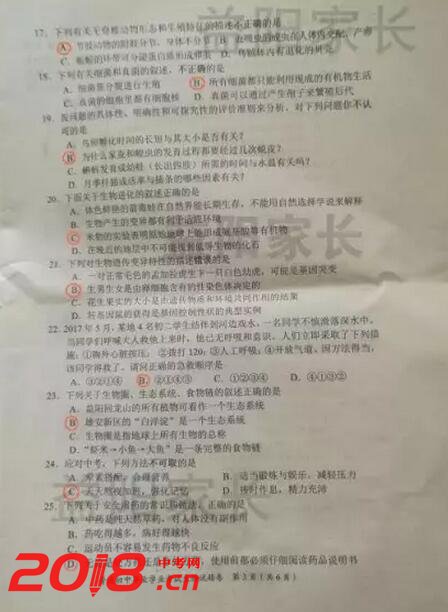 17. 下列有关无脊椎动物形态和生殖特征的描述不正确的是
A. 节肢动物的附肢分节，身体不分节 B. 血吸虫的成虫在人体内交配、产卵
C. 蚯蚓的环带可分泌蛋白质形成卵茧 D. 乌贼体内有退化的贝壳
18. 下列有关细菌和真菌的叙述，不正确的是
A. 细菌靠分裂进行生殖 B. 所有细菌都只能利用现成的有机物生活
C. 真菌的细胞里都有细胞核 D. 真菌可以通过产生孢子来繁殖后代
19. 按问题的具体性、明确性和可探究性的评价原则来分析，对下列问题你不认
可的是
A. 鸟卵孵化时间的长短与其大小是否有关？
B. 为什么家蚕和蝗虫的发育过程都要经过几次蜕皮？
C. 蝌蚪发育成幼蛙（长出四肢）所需的时间与水温有关吗？
D. 月季扦插成活率与插条的哪些因素有关？
20. 下面关于生物进化的叙述正确的是
A. 体色鲜艳的箭毒蛙在自然界能长期生存，不能用自然选择学说来解释
B. 生物产生的变异都有利于适应环境
C. 米勒的实验表明原始地球上能形成氨基酸等有机物
D. 在越近的地层中不可能找到低等生物的化石
21. 下列对生物遗传变异特性的描述错误的是
A. 一对正常毛色的孟加拉虎生下一只白色幼虎，可能是基因突变
B. 生男生女是由卵细胞含有的性染色体决定的
C. 花生果实的大小是由遗传物质和环境共同作用的结果
D. 转基因鼠的获得是基因控制性状的典型实例
22. 2017年5月，某地4名初二学生结伴到河边戏水，一名同学不慎滑落深水中，
当同学们呼喊大人救他上来时，他已无呼吸和意识。人们立即采取了下列措
施：①胸外心脏按压；②拨打120；③人工呼吸；④开放气道。因方法得当，
该同学得救了。请问正确的急救顺序是
A. ③②①④ B. ②④①③ C. ①②③④ D. ④①③②
23. 下列关于生物圈、生态系统、食物链的叙述正确的是
A. 益阳回龙山的所有植物可看作一个生态系统
B. 雄安新区的“白洋淀”是一个生态系统
C. 生物圈是指地球上所有生物的总称
D. “虾米→小鱼→大鱼”是一条完整的食物链
24. 应对中考，下列方法不可取的是
A. 荤素搭配，合理营养 B. 适当锻炼与娱乐，减轻压力
C. 天天熬夜加班，强化记忆 D. 按时作息，精力充沛
25. 下列关于安全用药的常识正确的是
A. 中药是纯天然草药，对人体没有副作用
B. 吃药越多，病好得越快
C. 运动员不容易发生药物不良反应
使用前都必须仔细阅读药品说明书
第3页（共6页）
益阳家长
益阳家长
益阳家长
中考网
2018.cn